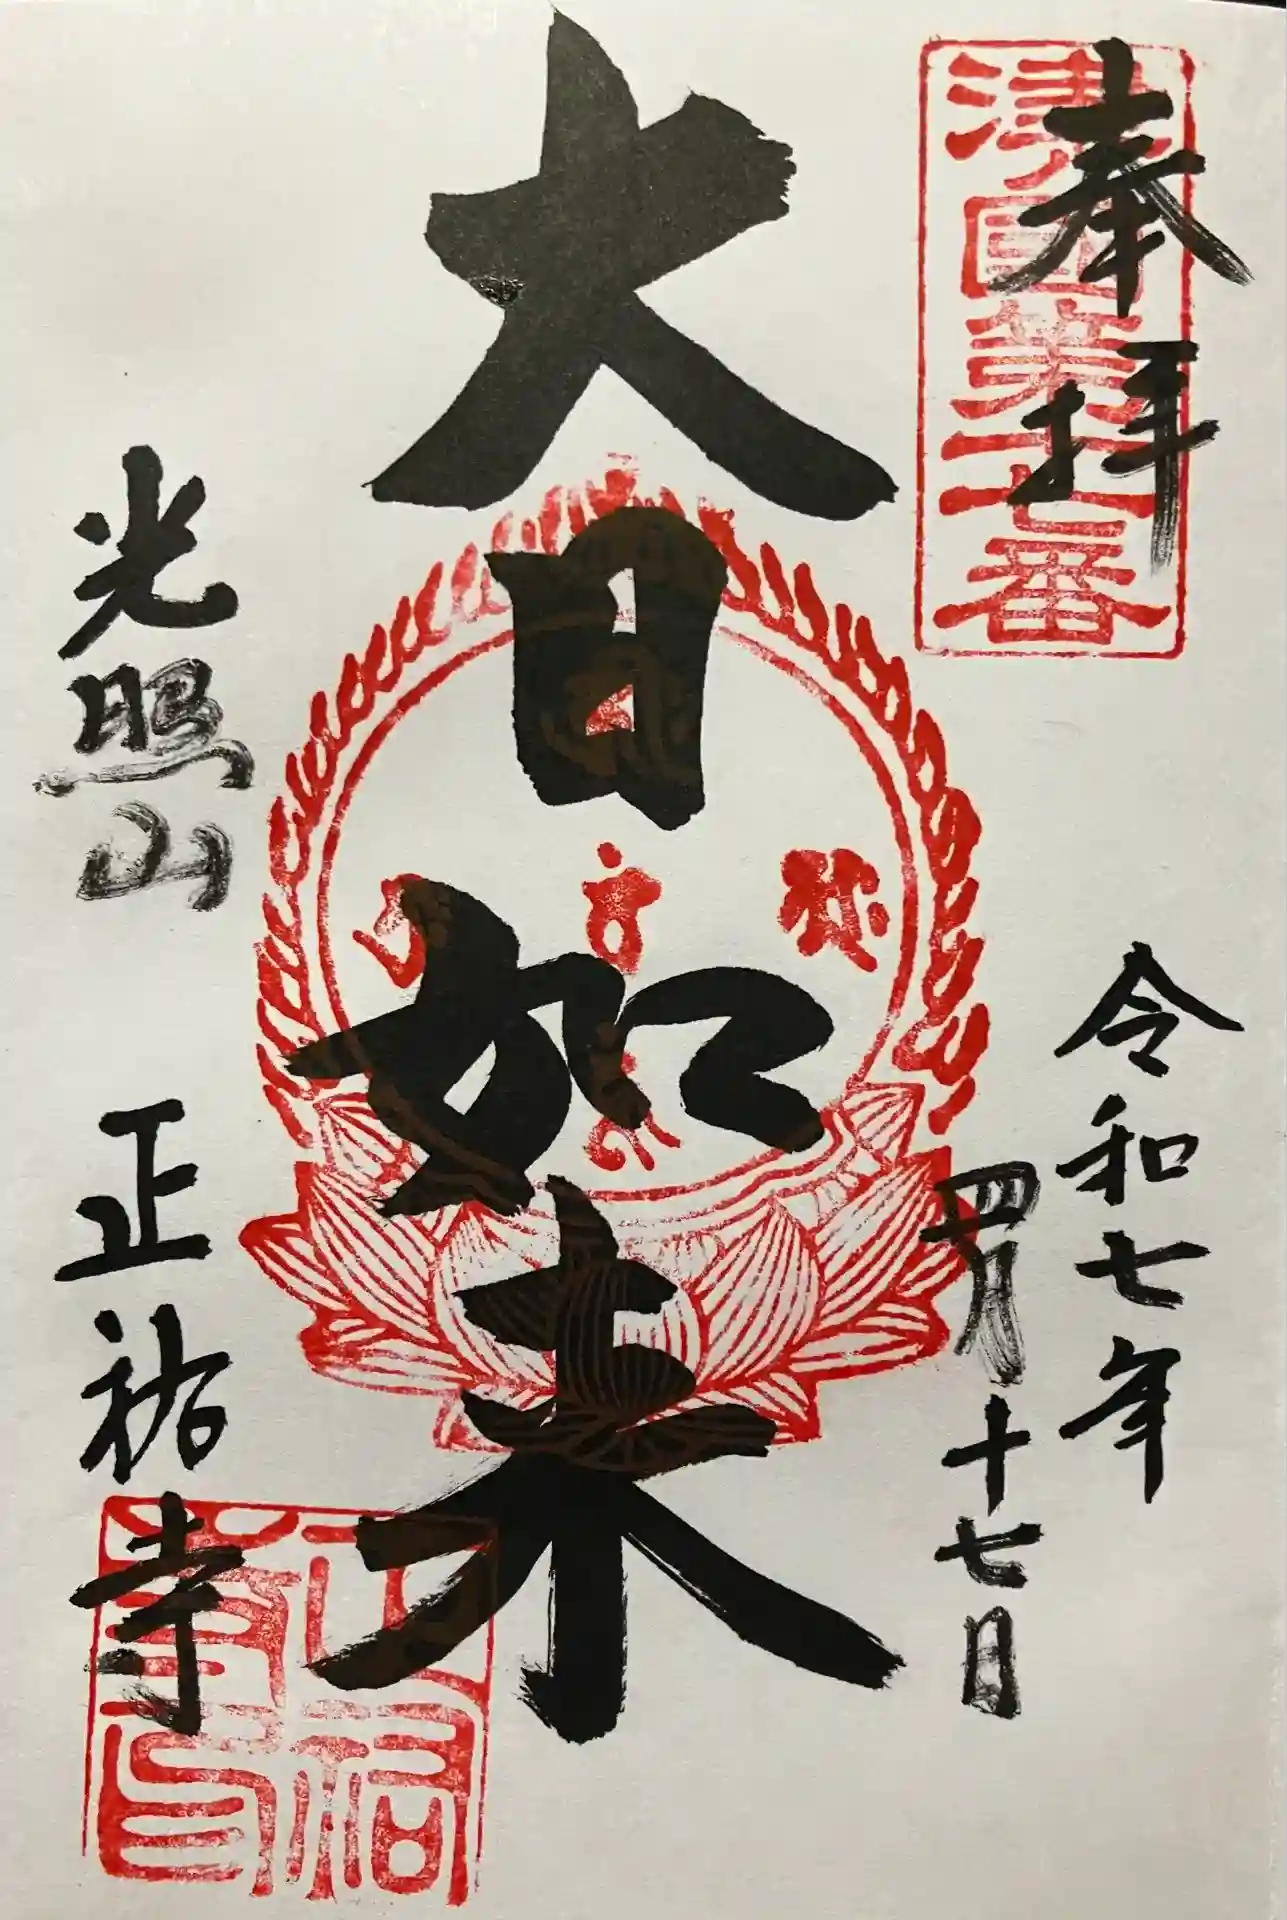 奉拝
津国第十七番
令和七年
四月十七日
大日如来
光照山 正祐寺
正祐
寺印